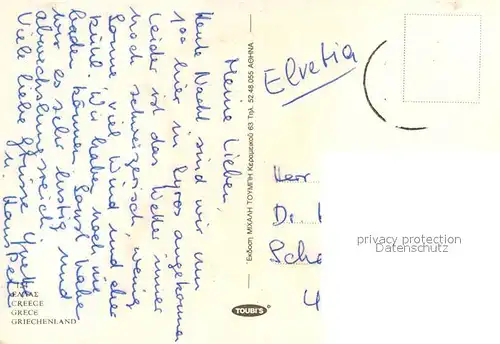 Meine Lieben,
Heute Nacht sind wir um
1⁰⁰ hier in Syros angekommen
Leider ist das Wetter immer
noch schweizerisch, wenig
Sonne viel Wind und eher
kühl. Wir haben noch nie
baden können. Sonst haben
wir es sehr lustig und
abwechslungsreich.
Viele liebe Grüsse
u.
Elvetia
Herr
D
Sch
4
Έκδοση ΜΙΧΑΛΗ ΤΟΥΜΠΗ Κεραμεικού 63 Τηλ. 52 48.055 ΑΘΗΝΑ
TOUBI'S
ΕΛΛΑΣ
CREECE
GRECE
GRIECHENLAND
privacy protection
Datenschutz